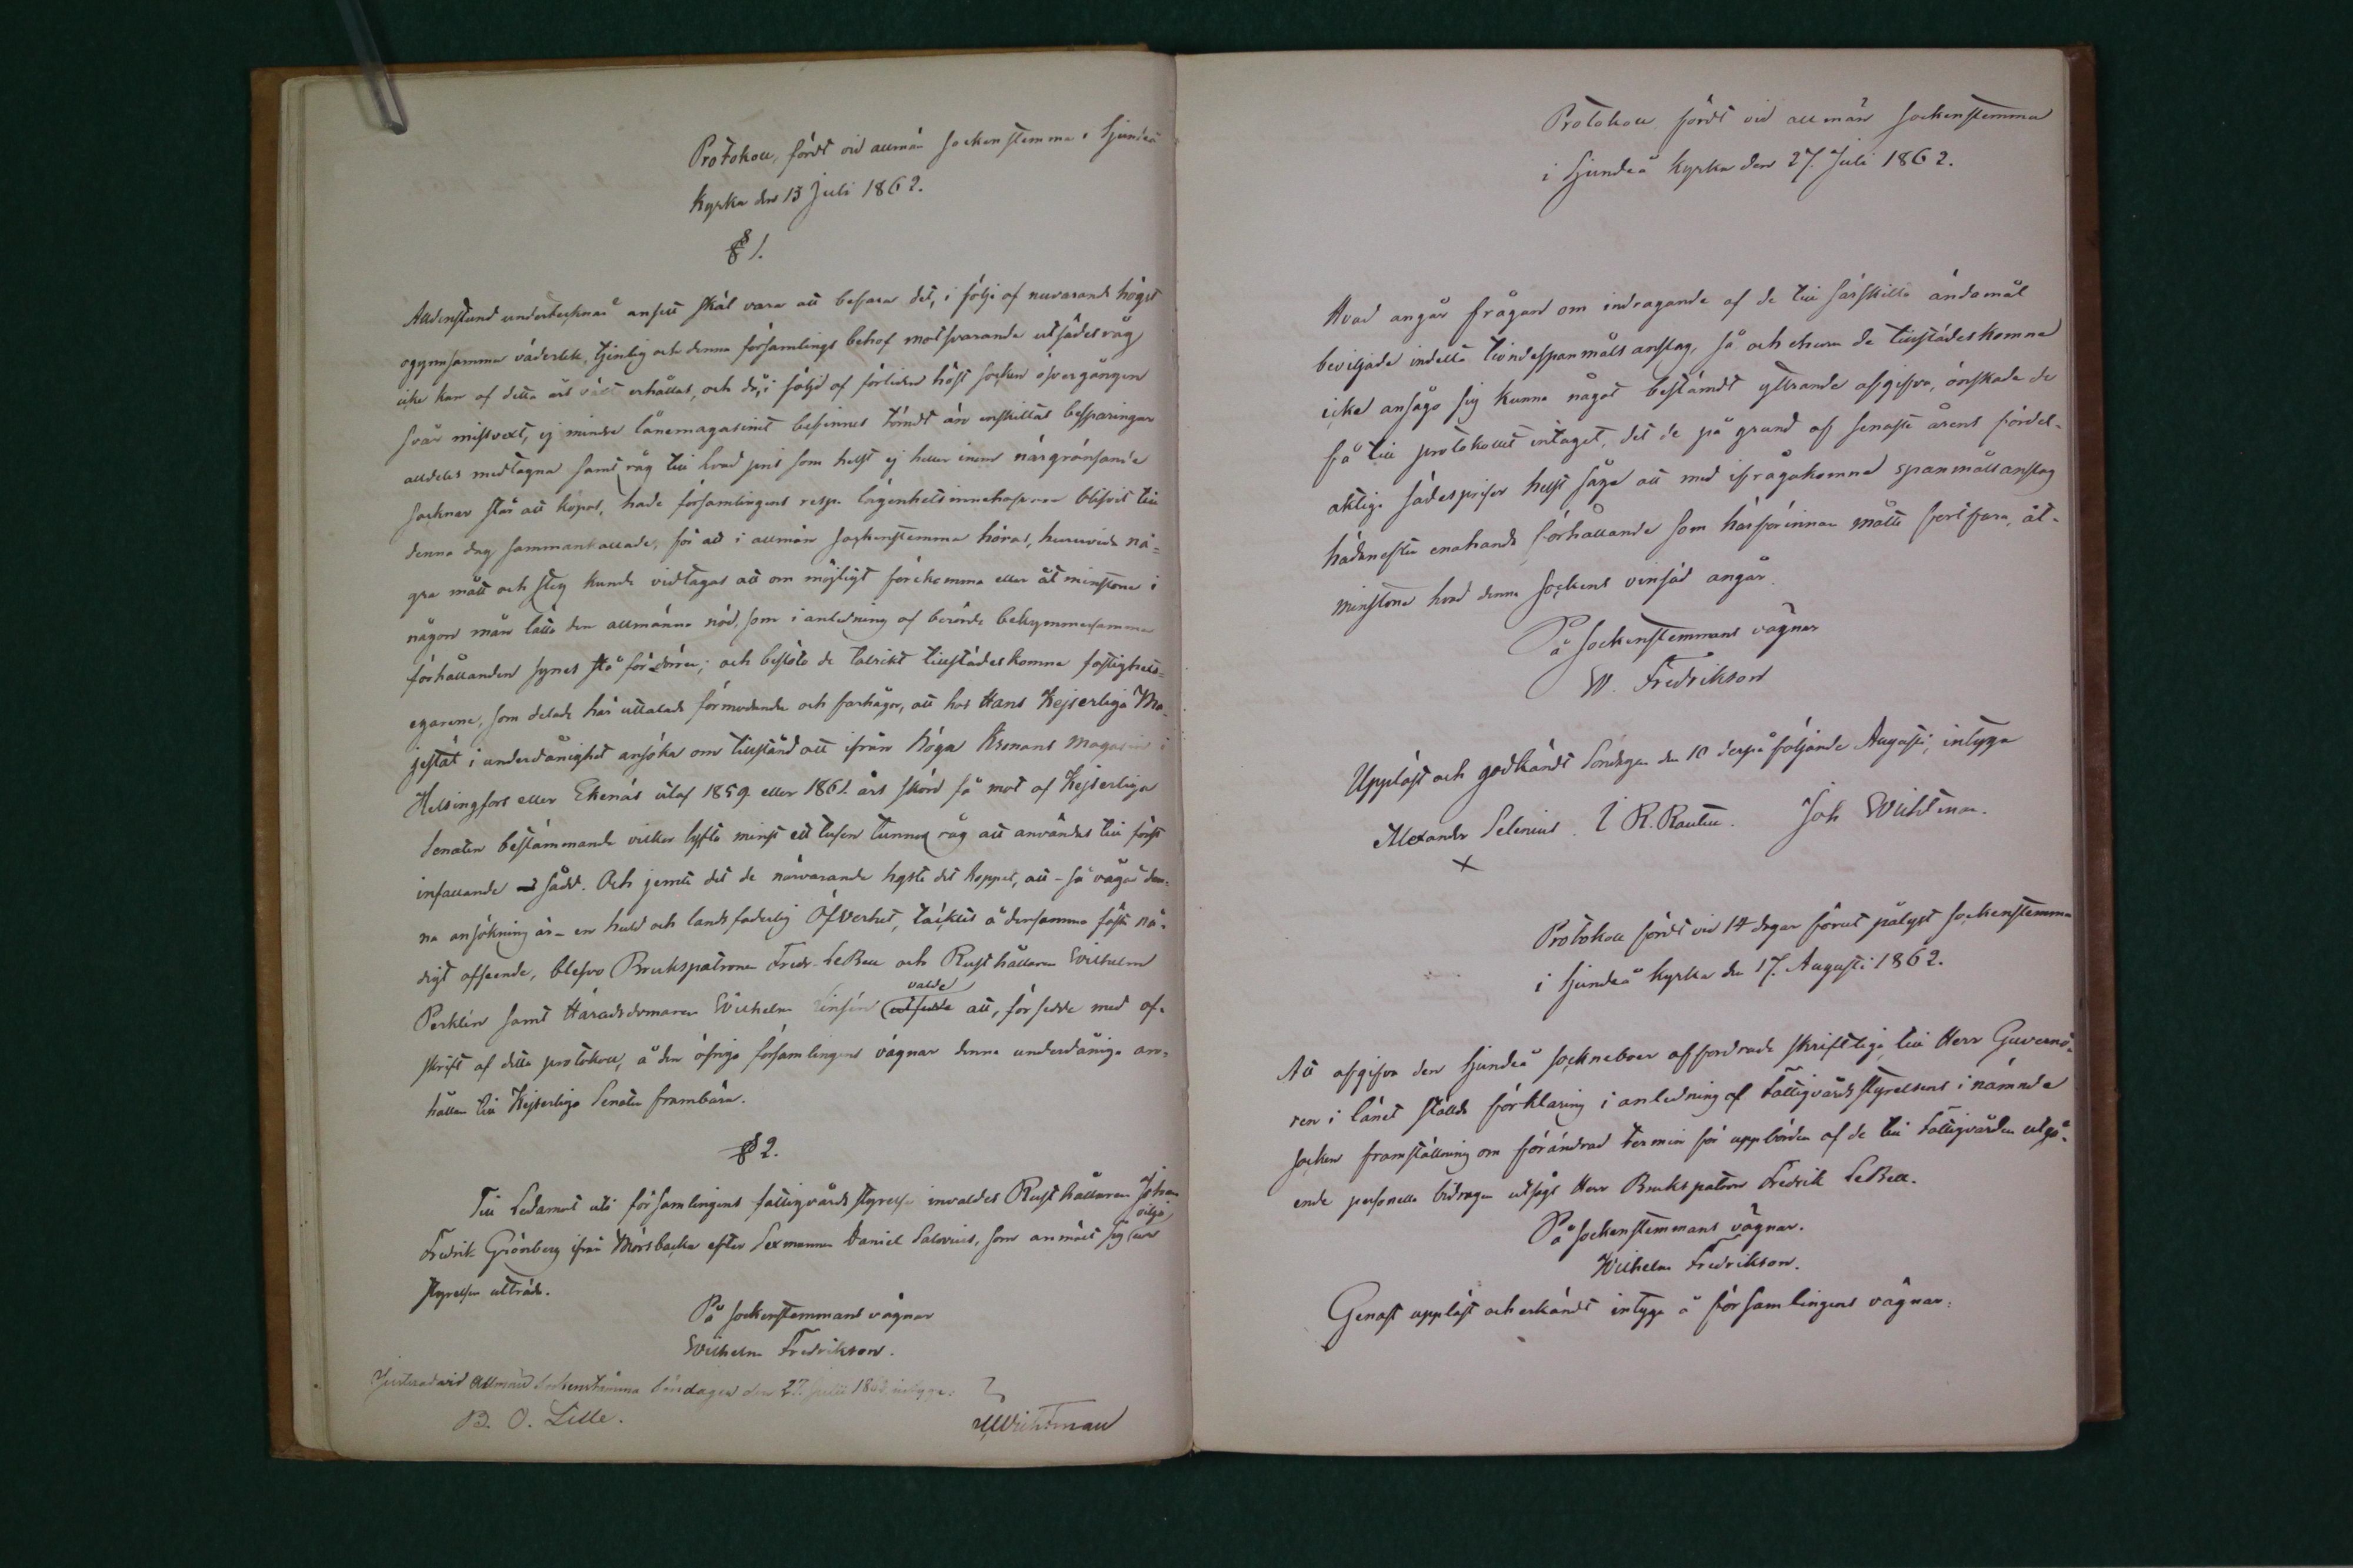 Protokoll, fördt vid allmän sockenstemma i Sjundeå
Kyrka den 13 Juli 1862.
§ 1.
Alldenstund undertecknad ansett skäl vara att befara det, i följe af nuvarande högst
ogynnsamma väderlek, tjenlig och denna församlings behof motsvarande utsädesråg
icke kan af detta års växt erhållas, och då, i följd af förliden höst socken öfvergången
svår missvext, ej mindre lånemagasinet befinnes tömdt än enskiltas besparingar
alldeles medtagna samt råg till hvad pris som helst ej heller inom närgränsande
socknar står att köpas, hade församlingens resp. lägenhetsinnehafvare blifvit till
denna dag sammankallade, för att i allmän sockenstemma höras, huruvida nå-
gra mått och steg kunde vidtagas att om möjligt förekomma eller åtminstone i
någon mån lätta den allmänna nöd, som i anledning af berörde bekymmersamma
förhållanden synes stå för dörren; och beslöto de talrikt tillstädeskomne fastighets-
egarene, som delade här uttalade förmodande och farhågor, att hos Hans Kejserliga Ma-
jestät i underdånighet ansöka om tillstånd att ifrån höga Kronans magasin i
Helsingfors eller Ekenäs utaf 1859 eller 1861 års skörd få mot af Kejserliga
Senaten bestämmande vilkor lyfta minst ett tusen tunnor råg att användas till först
infallande sådd. Och jemte det de närvarande hyste det hoppet, att - så vågad den-
na ansökning är - en huld och landsfaderlig Öfverhet, täcktes å densamma fästa nå-
digt afseende, blefvo Brukspatronen Fredr. LeBell och Rusthållaren Wilhelm
Perklén samt Häradsdomaren Wilhelm Linsén valde att, försedde med af-
skrift af detta protokoll, å den öfriga församlingens vägnar denna underdåniga an-
hållan till Kejserliga Senaten frambära.
§ 2.
Till Ledamot uti församlingens fattigvårdsstyrelse invaldes Rusthållaren Johan
Fredrik Grönberg ifrån Mörsbacka efter Sexmannen Daniel Salovius, som anmält sig vilja ur
styrelsen utträda.
På sockenstemmans vägnar
Wilhelm Fredrikson.
Justerad vid Allmän Sockenstämma Söndagen den 27. Julii 1862, intyga:
B. O. Lille.
Wichtman
Protokoll fördt vid allmän sockenstemma
i Sjundeå Kyrka den 27. Juli 1862.
Hvad angår frågan om indragande af de till särskilta ändamål
beviljade indelta tiondespanmålsanslag, så och ehuru de tillstädeskomne
icke ansågo sig kunna något bestämdt yttrande afgifva, önskade de
få till protokollet intaget, det de på grund af senaste årens fördel-
aktiga sädespriser helst såge att med ifrågakomna spanmålsanslag
hädanefter enahanda förhållande som härförinnan måtte fortfara, åt-
minstone hvad denna sockens vinsäd angår.
På Sockenstemmans vägnar
W. Fredrikson
Uppläst och godkändt Söndagen den 10 derpåföljande Augusti, intyga
Alexander Selenius. I R. Rautell. Joh Wichtman.
X
Protokoll fördt vid 14 dagar förut pålyst sockenstemma
i Sjundeå Kyrka den 17. Augusti 1862.
Att afgifva den Sjundeå sockneboer affordrade skriftliga, till Herr Guvernö-
ren i länet ställda förklaring i anledning af Fattigvårdsstyrelsens i nämnde
socken framställning om förändrad termin för uppbörden af de till Fattigvården utgå-
ende personella bidragen utsågs Herr Brukspatron Fredrik LeBell.
På sockenstemmans vägnar.
Wilhelm Fredrikson.
Genast uppläst och erkändt intyga å församlingens vägnar: